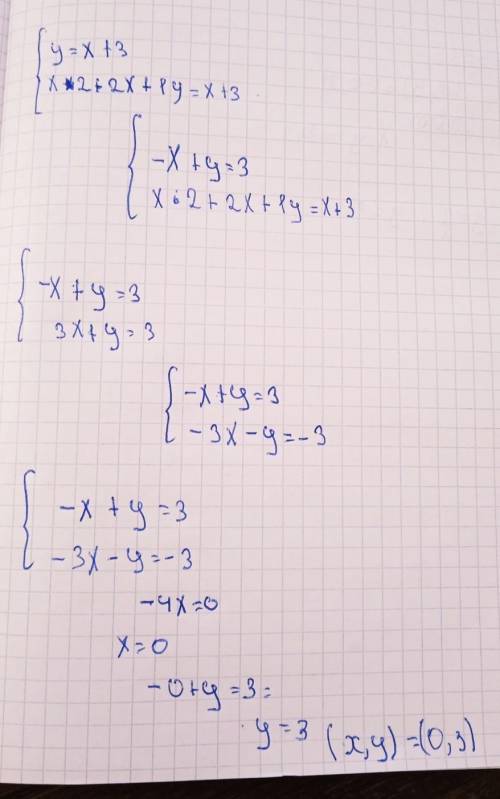 y = x + 3
x · 2 + 2x + 1y = x + 3
-x + y = 3
x · 2 + 2x + 1y = x + 3
-x + y = 3
3x + y = 3
-x + y = 3
-3x - y = -3
-x + y = 3
-3x - y = -3
-4x = 0
x = 0
-0 + y = 3 =
y = 3 (x, y) = (0, 3)